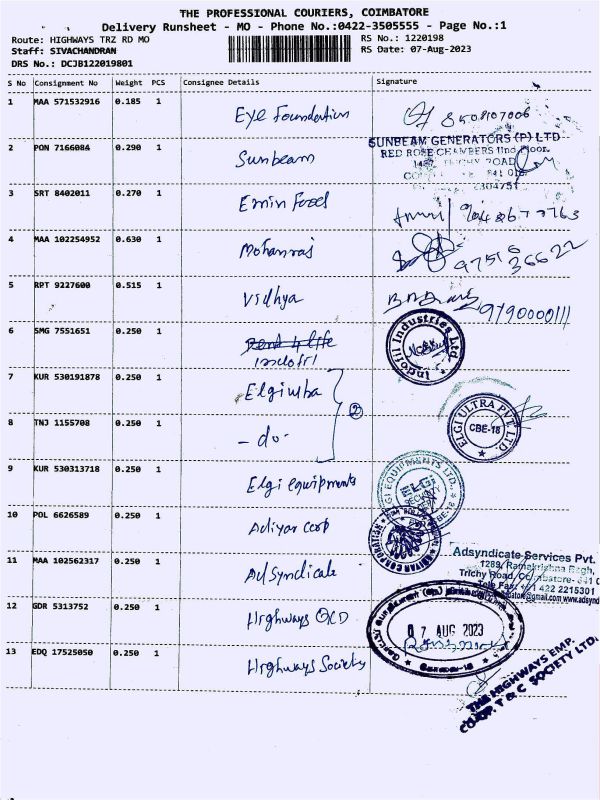 THE PROFESSIONAL COURIERS, COIMBATORE
Delivery Runsheet - MO - Phone No.:0422-3505555 - Page No.:1
Route: HIGHWAYS TRZ RD MO RS No.: 1220198
Staff: SIVACHANDRAN RS Date: 07-Aug-2023
DRS No.: DCJB122019801
S No Consignment No Weight PCS Consignee Details Signature
1 MAA 571532916 0.185 1 Eye Foundation 8508107006
2 PON 7166084 0.290 1 Sunbeam
SUNBEAM GENERATORS (P) LTD
RED ROSE CHAMBERS IInd Floor,
ROAD
3 SRT 8402011 0.270 1 Emin Food
4 MAA 102254952 0.630 1 Mohanraj 97515 36622
5 RPT 9227600 0.515 1 Vidhya 9790000111
6 SMG 7551651 0.250 1
Indofil Industries Ltd
7 KUR 530191878 0.250 1 Elgi ultra
2
8 TNJ 1155708 0.250 1 - do -
ELGI ULTRA PVT. LTD.
CBE-18
9 KUR 530313718 0.250 1 Elgi equipments
ELGI EQUIPMENTS LTD.,
ELGI
10 POL 6626589 0.250 1 Adiyar corp
ADIYAR CORPORATION
11 MAA 102562317 0.250 1 Adsyndicate
Adsyndicate Services Pvt.
1289, Ramakrishna
Trichy Road, Coimbatore-
Tele Fax: +91 422 2215301
12 GDR 5313752 0.250 1 Highways OCD
07 AUG 2023
13 EDQ 17525050 0.250 1 Highways Society
THE HIGHWAYS EMP.
CO-OP. T & C SOCIETY LTD.